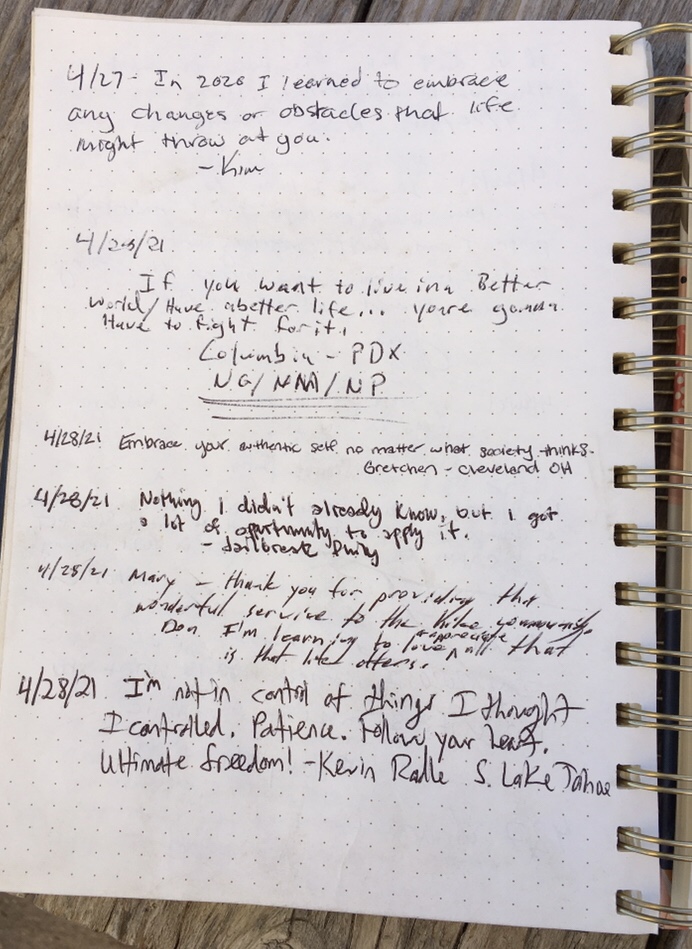 4/27 - In 2020 I learned to embrace
any changes or obstacles that life
might throw at you.
- Kim
4/28/21
If you want to live in a Better
World/Have a better life... youre gonna
Have to fight for it.
Columbia - PDX
NG/NNA/NP
4/28/21 Embrace your authentic self no matter what society thinks-
Gretchen - Cleveland OH
4/28/21 Nothing I didn't already know, but I got
a lot of oportunity to apply it.
- Jailbreak
4/28/21 Mary - thank you for providing this
wonderful service to the hike community
Don I'm learning to love & appreciate all that
is that life offers.
4/28/21 I'm not in control of things I thought
I controlled. Patience. Follow your heart.
Ultimate freedom! - Kevin S. Lake Tahoe